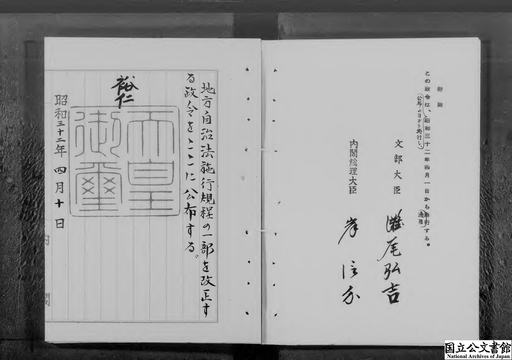 附則
この政令は、昭和三十二年四月一日から施行する。
文部大臣
灘尾弘吉
内閣総理大臣
岸信介
地方自治法施行規程の一部を改正す
る政令をここに公布する。
裕仁
天皇
御璽
昭和三十二年四月十日
内閣
国立公文書館
National Archives of Japan